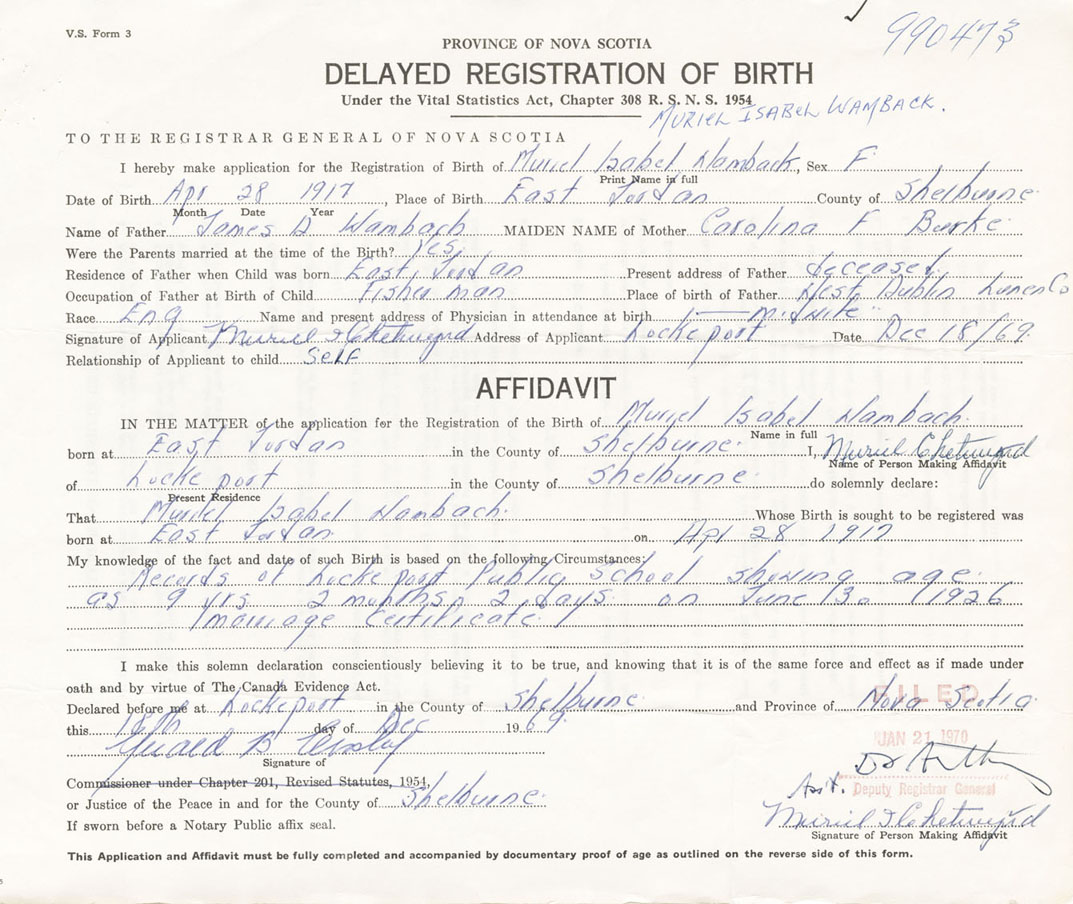 V.S. Form 3
990473
PROVINCE OF NOVA SCOTIA
DELAYED REGISTRATION OF BIRTH
Under the Vital Statistics Act, Chapter 308 R. S. N. S. 1954
MURIEL ISABEL WAMBACK.
TO THE REGISTRAR GENERAL OF NOVA SCOTIA
I hereby make application for the Registration of Birth of Muriel Isabel Wamback, Sex F
Print Name in full
Date of Birth Apr 28 1917, Place of Birth East Jordan, County of Shelburne
Month Date Year
Name of Father James D Wambach MAIDEN NAME of Mother Carolina F Burke
Were the Parents married at the time of the Birth? Yes
Residence of Father when Child was born East Jordan Present address of Father deceased
Occupation of Father at Birth of Child Fisherman Place of birth of Father West Dublin Lunen Co
Race Eng Name and present address of Physician in attendance at birth midwife
Signature of Applicant Muriel I Chetwynd Address of Applicant Lockeport Date Dec 18/69
Relationship of Applicant to child self
AFFIDAVIT
IN THE MATTER of the application for the Registration of the Birth of Muriel Isabel Wambach
Name in full
born at East Jordan in the County of Shelburne I, Muriel Chetwynd
Name of Person Making Affidavit
of Locke port in the County of Shelburne do solemnly declare:
Present Residence
That Muriel Isabel Wambach Whose Birth is sought to be registered was
born at East Jordan on Apr 28 1917
My knowledge of the fact and date of such Birth is based on the following Circumstances:
Records of Locke port Public School showing age
as 9 yrs 2 months 2 days on June 30 1926
Marriage Certificate
I make this solemn declaration conscientiously believing it to be true, and knowing that it is of the same force and effect as if made under
oath and by virtue of The Canada Evidence Act.
Declared before me at Lockeport in the County of Shelburne and Province of Nova Scotia
FILED
this 18th day of Dec 1969
JAN 21 1970
Signature of
Commissioner under Chapter 201, Revised Statutes, 1954,
Ass't. Deputy Registrar General
or Justice of the Peace in and for the County of Shelburne
Muriel I Chetwynd
If sworn before a Notary Public affix seal.
Signature of Person Making Affidavit
This Application and Affidavit must be fully completed and accompanied by documentary proof of age as outlined on the reverse side of this form.